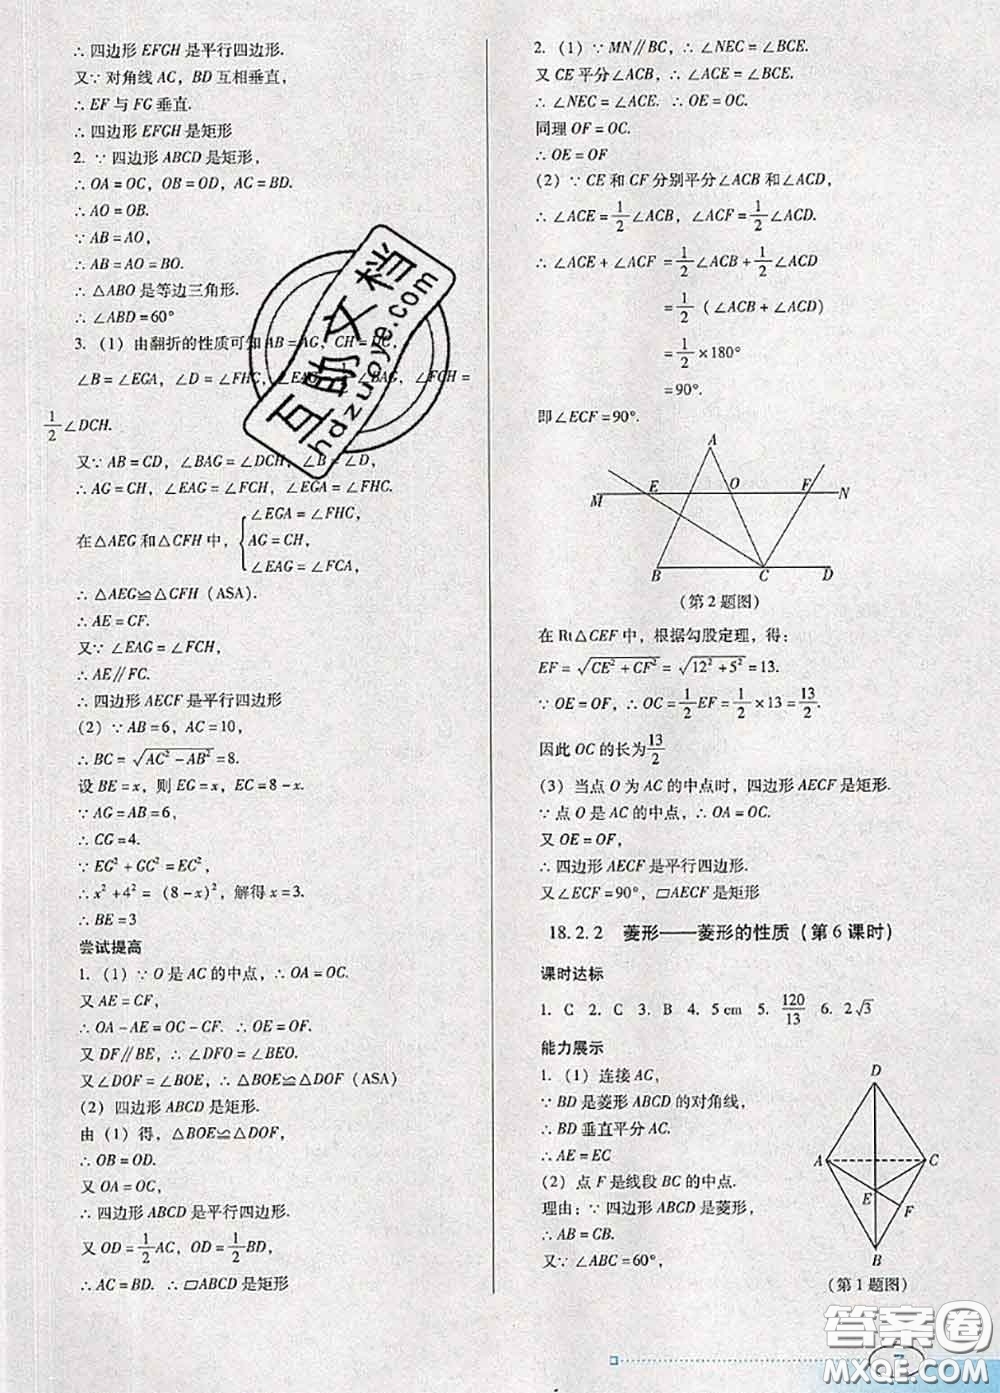 ∴ 四边形 EFGH 是平行四边形.
又∵ 对角线 AC，BD 互相垂直，
∴ EF 与 FG 垂直.
∴ 四边形 EFGH 是矩形
2. ∵ 四边形 ABCD 是矩形，
∴ OA = OC，OB = OD，AC = BD.
∴ AO = OB.
∵ AB = AO，
∴ AB = AO = BO.
∴ △ABO 是等边三角形.
∴ ∠ABD = 60°
3.（1）由翻折的性质可知 AB = AG，CH = FC，
∠B = ∠EGA，∠D = ∠FHC，∠EAG = ∠BAG，∠FCH =
1/2 ∠DCH.
又∵ AB = CD，∠BAG = ∠DCH，∠B = ∠D，
∴ AG = CH，∠EAG = ∠FCH，∠EGA = ∠FHC.
在△AEG 和△CFH 中，{ ∠EGA = ∠FHC，
AG = CH，
∠EAG = ∠FCA，
∴ △AEG≌△CFH（ASA）.
∴ AE = CF.
又∵ ∠EAG = ∠FCH，
∴ AE∥FC.
∴ 四边形 AECF 是平行四边形
（2）∵ AB = 6，AC = 10，
∴ BC = √(AC² − AB²) = 8.
设 BE = x，则 EG = x，EC = 8 − x.
∵ AG = AB = 6，
∴ CG = 4.
∵ EG² + GC² = EC²，
∴ x² + 4² =（8 − x）²，解得 x = 3.
∴ BE = 3
尝试提高
1.（1）∵ O 是 AC 的中点，∴ OA = OC.
又 AE = CF，
∴ OA − AE = OC − CF. ∴ OE = OF.
又 DF∥BE，∴ ∠DFO = ∠BEO.
又∠DOF = ∠BOE，∴ △BOE≌△DOF（ASA）
（2）四边形 ABCD 是矩形.
由（1）得，△BOE≌△DOF，
∴ OB = OD.
又 OA = OC，
∴ 四边形 ABCD 是平行四边形.
又 OD = 1/2 AC，OD = 1/2 BD，
∴ AC = BD. ∴ ▱ABCD 是矩形
2.（1）∵ MN∥BC，∴ ∠NEC = ∠BCE.
又 CE 平分∠ACB，∴ ∠ACE = ∠BCE.
∴ ∠NEC = ∠ACE. ∴ OE = OC.
同理 OF = OC.
∴ OE = OF
（2）∵ CE 和 CF 分别平分∠ACB 和∠ACD，
∴ ∠ACE = 1/2 ∠ACB，∠ACF = 1/2 ∠ACD.
∴ ∠ACE + ∠ACF = 1/2 ∠ACB + 1/2 ∠ACD
= 1/2（∠ACB + ∠ACD）
= 1/2 × 180°
= 90°.
即∠ECF = 90°.
A
M E O F N
B C D
（第 2 题图）
在 Rt△CEF 中，根据勾股定理，得：
EF = √(CE² + CF²) = √(12² + 5²) = 13.
∵ OE = OF，∴ OC = 1/2 EF = 1/2 × 13 = 13/2.
因此 OC 的长为 13/2
（3）当点 O 为 AC 的中点时，四边形 AECF 是矩形.
∵ 点 O 是 AC 的中点，∴ OA = OC.
又 OE = OF，
∴ 四边形 AECF 是平行四边形.
又∠ECF = 90°，▱AECF 是矩形
18.2.2 菱形——菱形的性质（第 6 课时）
课时达标
1. C 2. C 3. B 4. 5 cm 5. 120/13 6. 2√3
能力展示
1.（1）连接 AC，
∵ BD 是菱形 ABCD 的对角线，
∴ BD 垂直平分 AC.
∴ AE = EC
（2）点 F 是线段 BC 的中点.
理由：∵ 四边形 ABCD 是菱形，
∴ AB = CB.
又∵ ∠ABC = 60°，
D
A C
E F
B
（第 1 题图）
互助文档
hdzuoye.com
答案圈
MXQE.COM